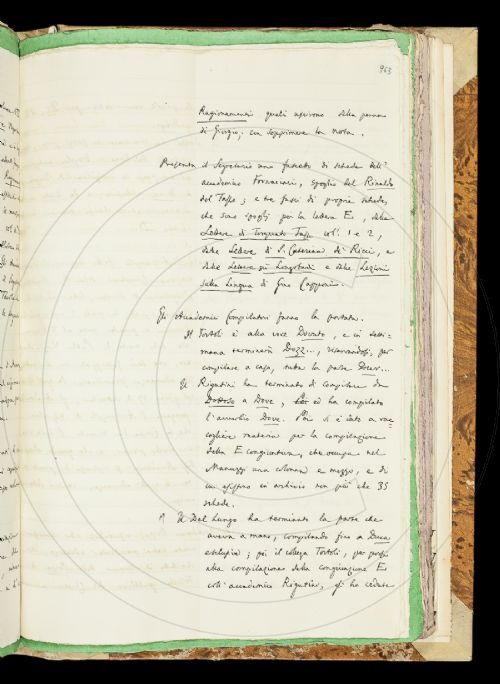 963
Ragionamenti quali uscirono dalla penna
di Giorgio; con soppressione la nota.
Presenta il Segretario una fascetto di schede dell'
accademico Fornaciari, spoglio del Rinaldo
del Tasso; e tre fasci di proprie schede,
che sono spogli per la lettera E, delle
Lettere di Torquato Tasso vol. 1 e 2,
delle Lettere di S. Caterina de' Ricci, e
delle Lettere sui Longobardi e delle Lezioni
sulla Lingua di Gino Capponi.
Gli Accademici Compilatori fanno la portata.
Il Tortoli è alla voce Dovuto, e in setti-
mana terminerà Dozz..., riserbandosi, per
compilare a casa, tutta la parte Dover...
Il Rigutini ha terminato di compilare da
Dottoso a Dove, ed ha compilato
l'avverbio Dove. Poi si è dato a rac
cogliere materia per la compilazione
della E congiuntura, che occupa nel
Manuzzi una colonna e mezzo, e di
cui esistono in archivio non più che 35
schede.
Il Del Lungo ha terminato la parte che
aveva a mano, compilando fino a Duca
; poi il collega Tortoli, per
alla compilazione della congiunzione E
coll'accademico Rigutini, gli ha ceduto